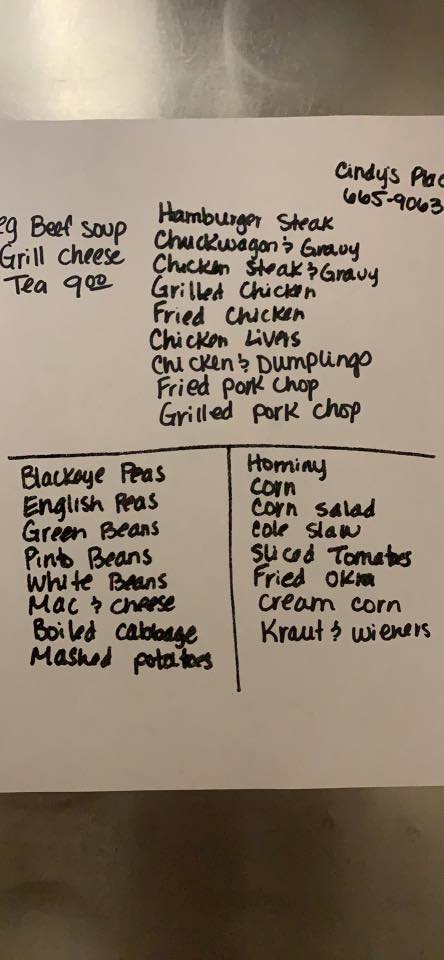 Cindy's Plac
665-9063
eg Beef soup
Grill cheese
Tea 9.00
Hamburger Steak
Chuckwagon & Gravy
Chicken Steak & Gravy
Grilled Chicken
Fried Chicken
Chicken Livers
Chicken & Dumplings
Fried Pork Chop
Grilled pork chop
Blackeye Peas
English Peas
Green Beans
Pinto Beans
White Beans
Mac & cheese
Boiled cabbage
Mashed potatoes
Hominy
Corn
Corn salad
cole slaw
Sliced Tomatoes
Fried Okra
Cream corn
Kraut & wieners